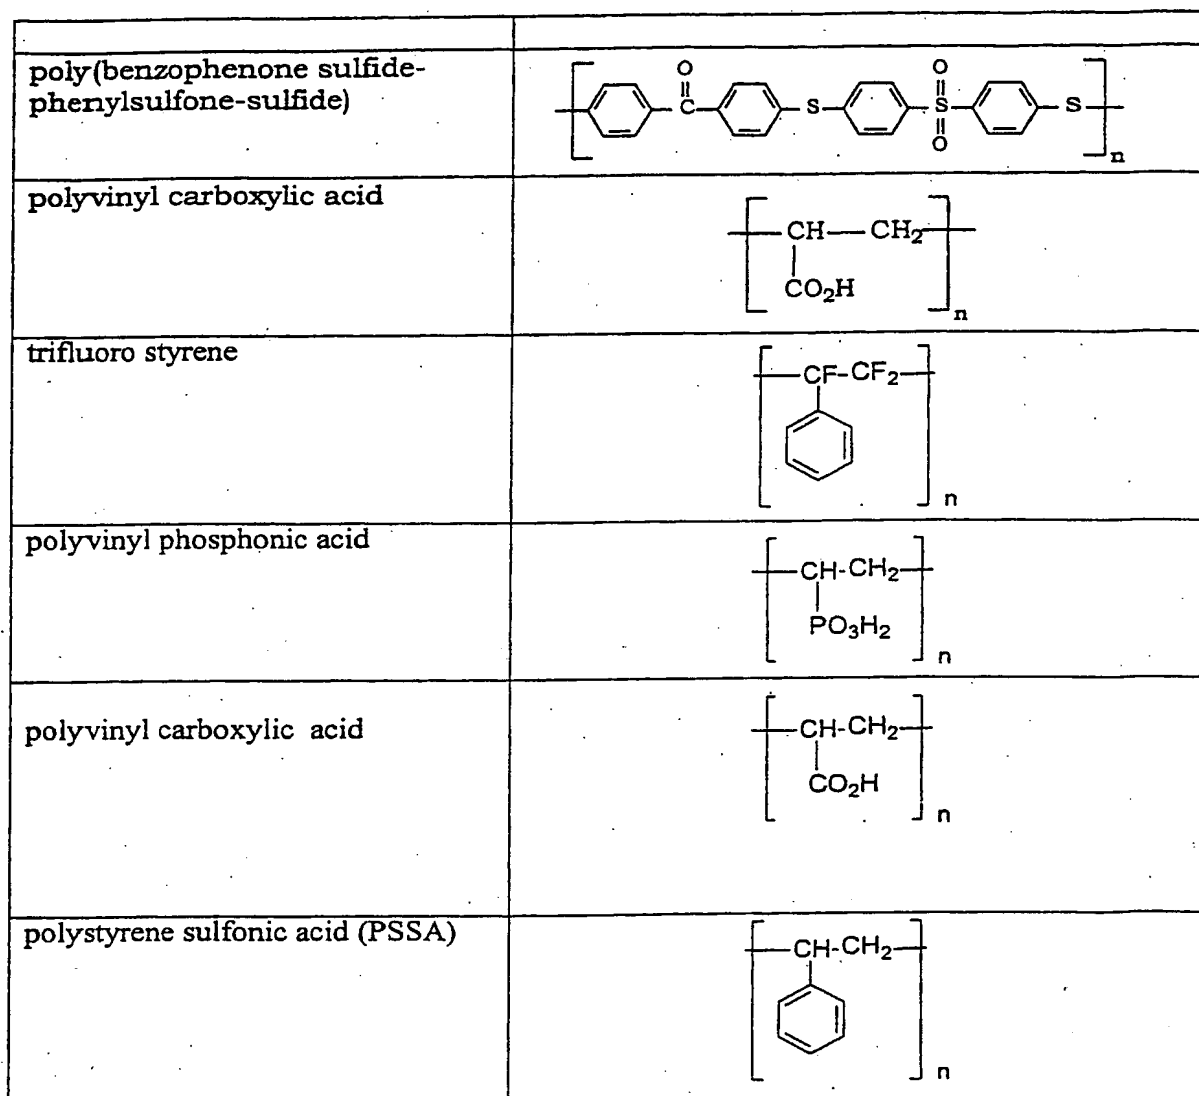 poly(benzophenone sulfide-
phenylsulfone-sulfide)
O
C
S
O
S
O
S
n
polyvinyl carboxylic acid
CH—CH₂
CO₂H
n
trifluoro styrene
CF-CF₂
n
polyvinyl phosphonic acid
CH-CH₂
PO₃H₂
n
polyvinyl carboxylic acid
CH-CH₂
CO₂H
n
polystyrene sulfonic acid (PSSA)
CH-CH₂
n